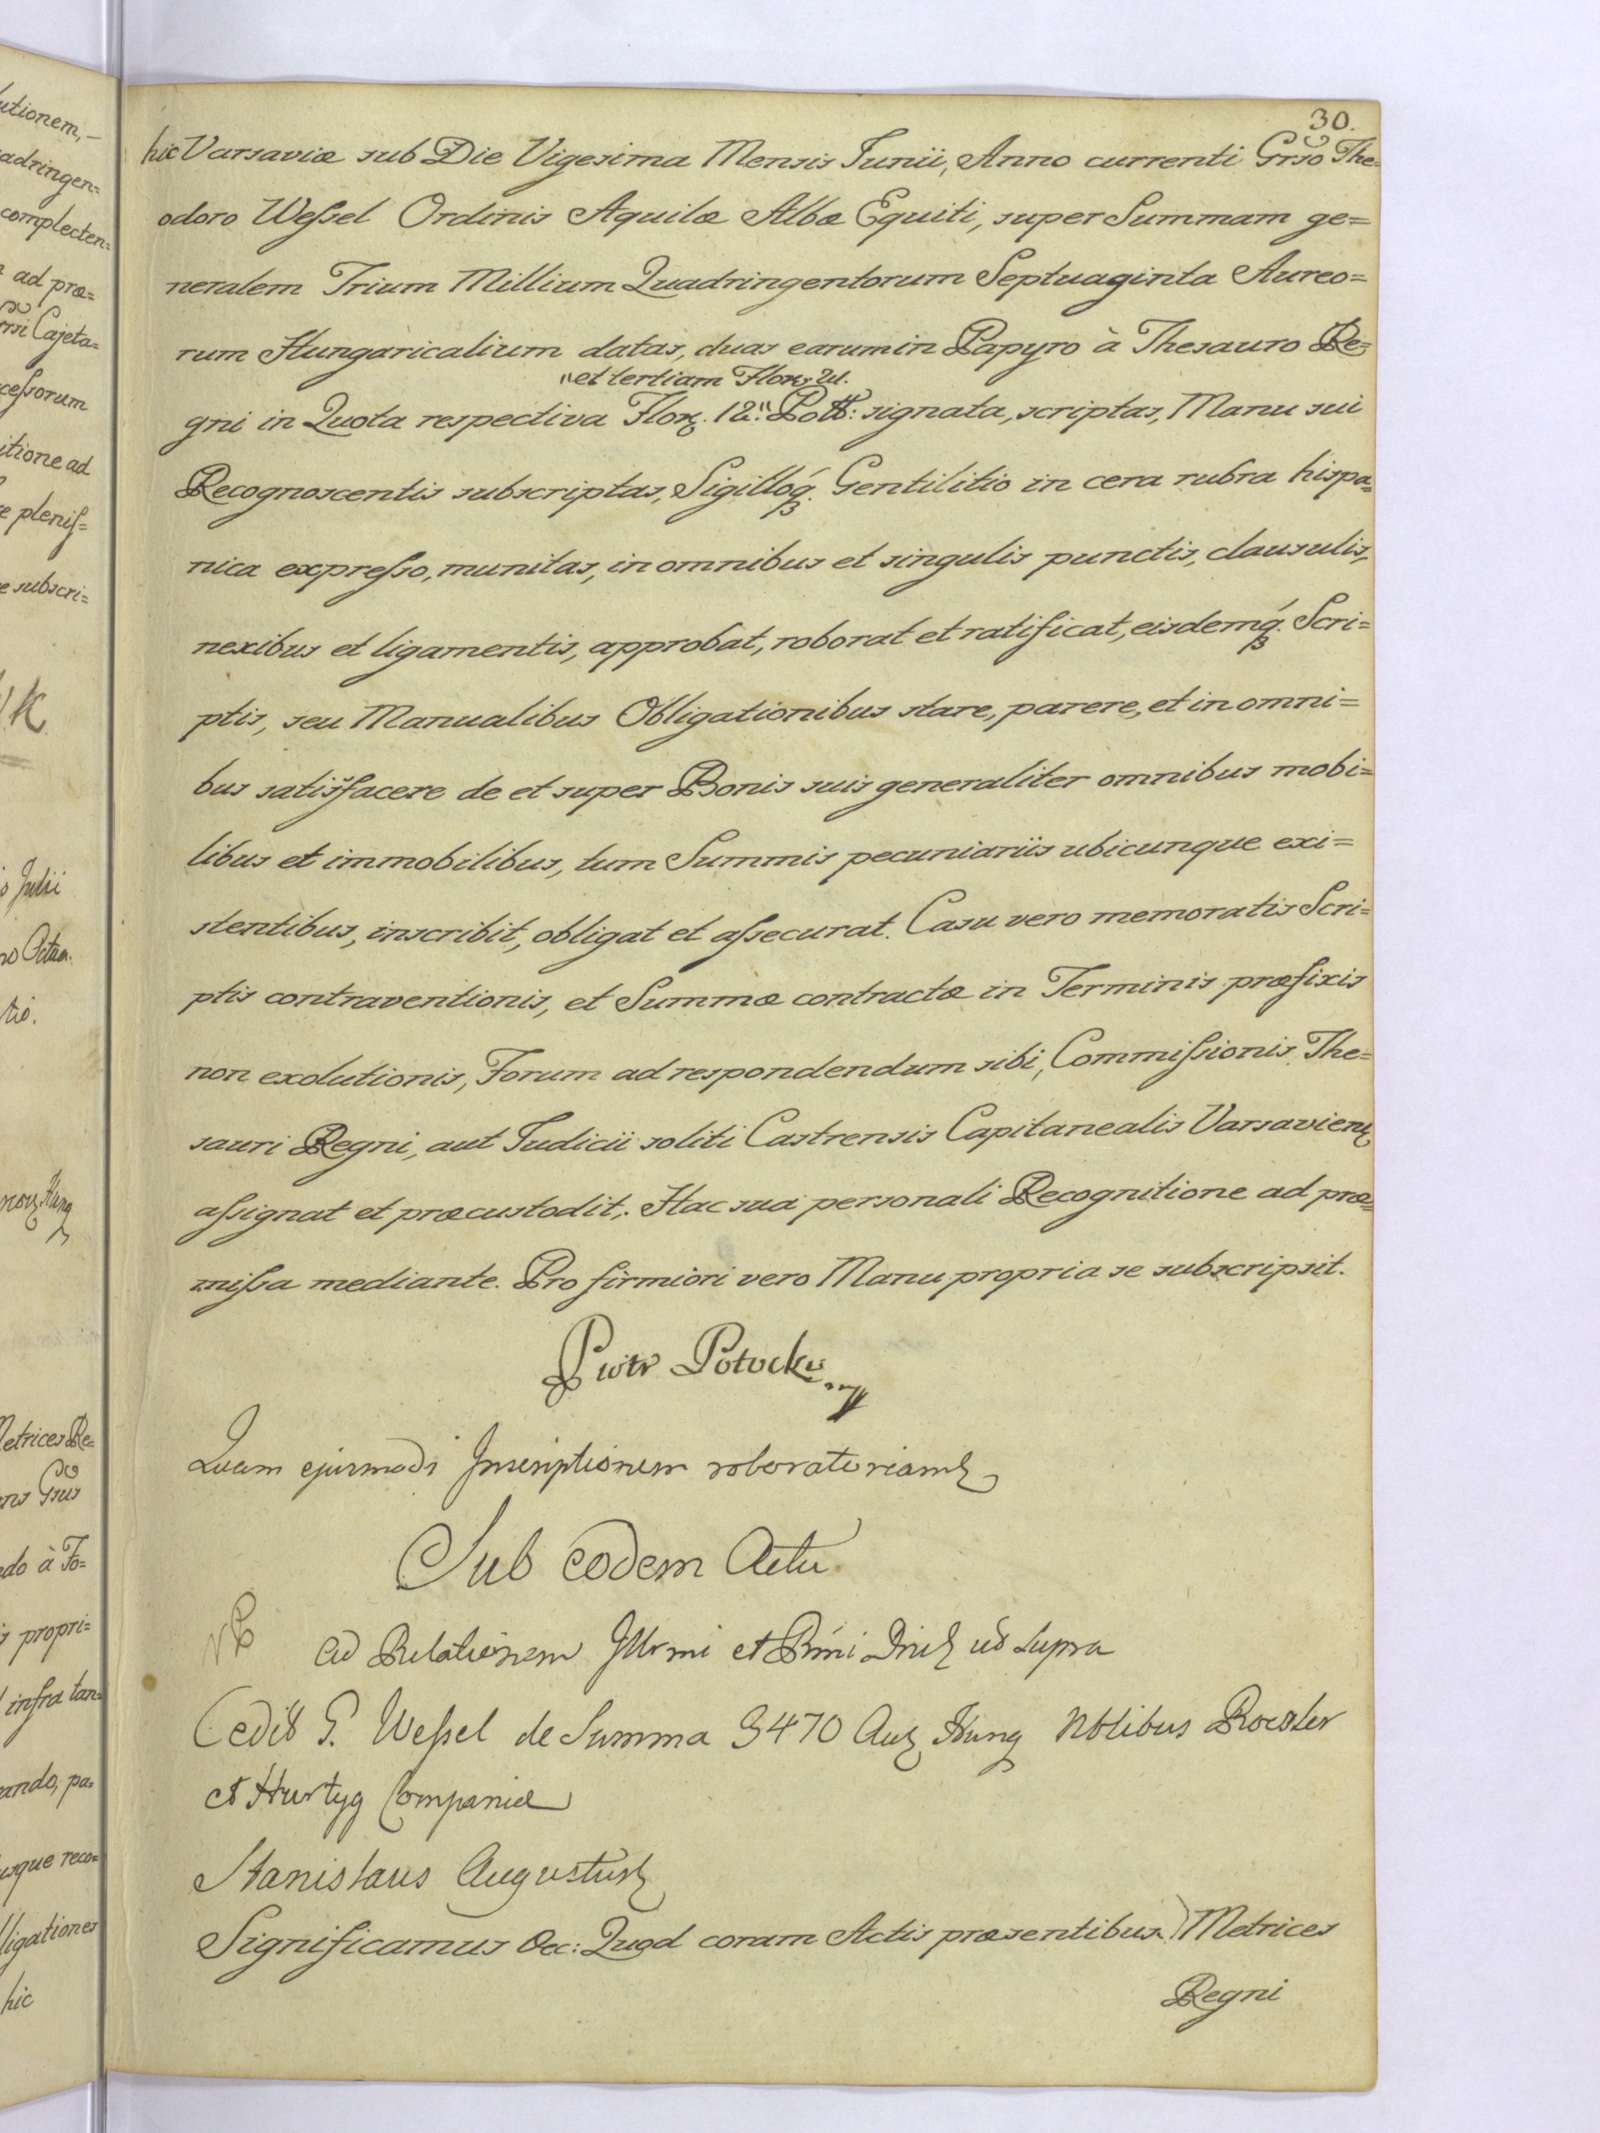 utionem,-
adringen=
complecten=
ad præ=
rsi Cajeta=
cessorum
itione ad
e plenis=
e subscri=
Julii
tio.
Metrices Re=
ens Gsus
do à Fo=
is propri=
infra tan=
ando, pa=
usque reco=
ligationes
hic
30.
hic Varsaviæ sub Die Vigesima Mensis Junii, Anno currenti Grso The=
odoro Wessel Ordinis Aquilæ Albæ Equiti, super Summam ge=
neralem Trium Millium Quadringentorum Septuaginta Aureo=
rum Hungaricalium datas, duas earum in Papyro à Thesauro Re=
"et tertiam Flor. 21.
gni in Quota respectiva Flor. 12." Poll: signata, scriptas, Manu sui
Recognoscentis subscriptas, Sigilloq. Gentilitio in cera rubra hispa=
nica expresso, munitas, in omnibus et singulis punctis, clausulis,
nexibus et ligamentis, approbat, roborat et ratificat, eisdemq. Scri=
ptis, seu Manualibus Obligationibus stare, parere, et in omni=
bus satisfacere de et super Bonis suis generaliter omnibus mobi=
libus et immobilibus, tum Summis pecuniariis ubicunque exi=
stentibus, inscribit, obligat et assecurat. Casu vero memoratis Scri=
ptis contraventionis, et Summæ contractæ in Terminis præfixis
non exolutionis, Forum ad respondendum sibi, Commissionis The=
sauri Regni, aut Judicii soliti Castrensis Capitanealis Varsavien.
assignat et præcustodit. Hac sua personali Recognitione ad præ=
missa mediante. Pro firmiori vero Manu propria se subscripsit.
Piotr Potocki
Quam ejusmodi Inscriptionem roboratoriam
Sub eodem Actu
Ad Relationem Illrmi et Rmi Dni ut supra
Cedit G. Wessel de Summa 3470 Aur Hung Nblibus Roesler
et Hurtyg Companiæ
Stanislaus Augustus
Significamus &c: Quod coram Actis præsentibus Metrices
Regni